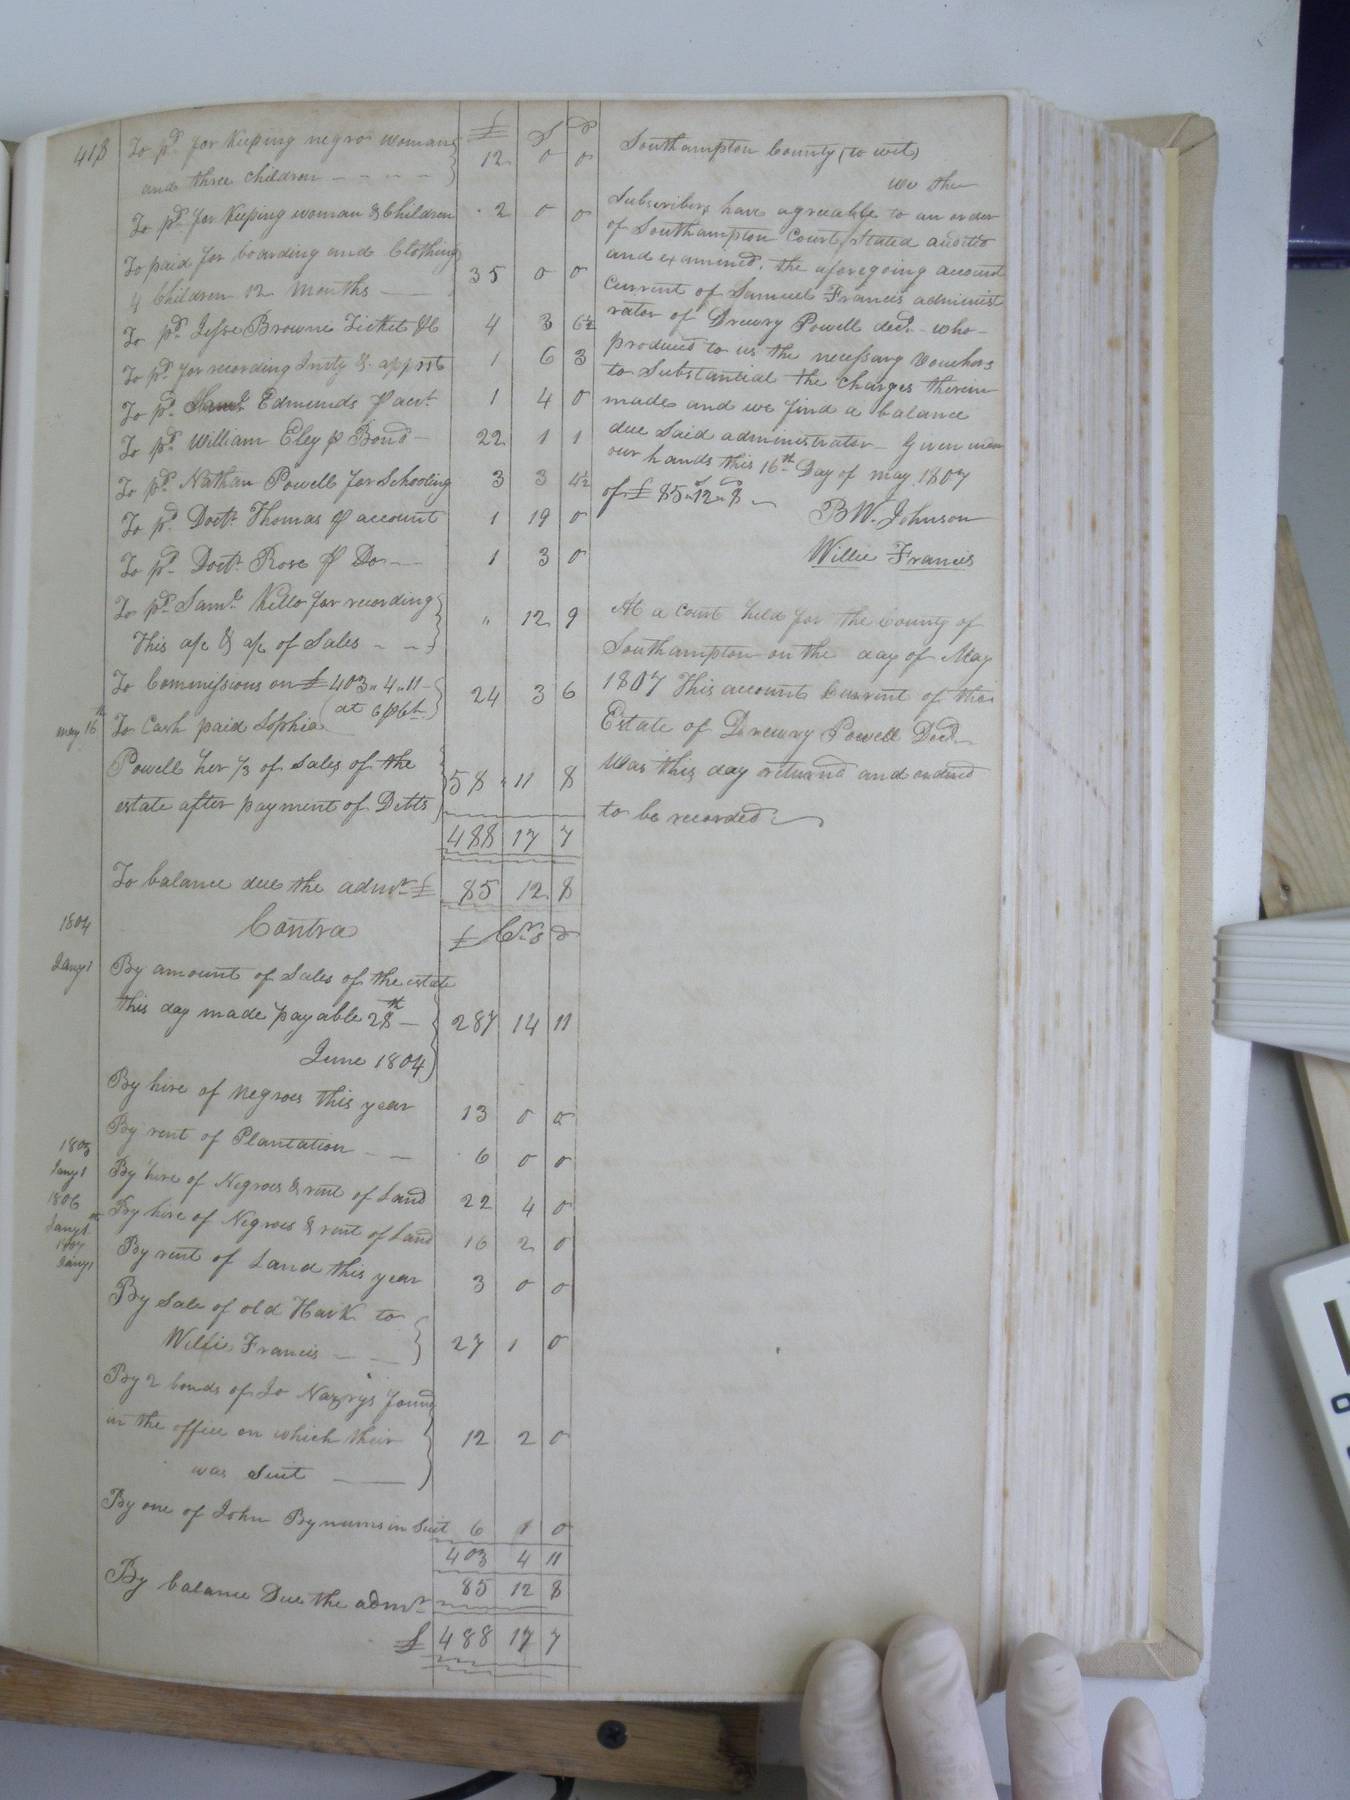 418
£ S D
To pd. for Keeping negro woman
and three children - - - - 12 0 0
To pd. for Keeping woman & Children 2 0 0
To paid for boarding and Clothing
4 Children 12 Months — 35 0 0
To pd. Jesse Browne Ticket &c 4 3 6½
To pd. for recording Invty & apprst 1 6 3
To pd. Saml. Edmunds ⅌ acct. 1 4 0
To pd. William Eley ⅌ Bond - 22 1 1
To pd. Nathan Powell for Schooling 3 3 4½
To pd. Doctr. Thomas ⅌ account 1 19 0
To pd. Doctr. Rose ⅌ Do - - 1 3 0
To pd. Saml. Kello for recording
This a/c & a/c of Sales - - - " 12 9
To Commissions on £ 403 " 4 " 11 -
at 6 ⅌ Ct. 24 3 6
may 16th To Cash paid Sophia
Powell her ⅓ of Sales of the
estate after payment of Debts 58 " 11 8
488 17 7
To balance due the admr. £ 85 12 8
1804 Contra £ Cr. S D
Jany 1 By amount of Sales of the estate
this day made payable 28th —
June 1804 287 14 11
By hire of negroes this year 13 0 0
By rent of Plantation - — 6 0 0
1805
Jany 1 By hire of Negroes & rent of Land 22 4 0
1806
Jany 1st By hire of Negroes & rent of Land 16 2 0
1807
Jany 1 By rent of Land this year 3 0 0
By Sale of old Hark to
Willie Francis — — 27 1 0
By 2 bonds of Jo found
in the office on which their
was Suit — — 12 2 0
By one of John Bynums in Suit 6 1 0
403 4 11
By balance Due the admr. 85 12 8
£ 488 17 7
Southampton County (to wit)
we the
Subscribers have agreeable to an order
of Southampton Court, Stated audited
and examined, the aforegoing account
Current of Samuel Francis administ
rator of Drewry Powell decd. - who -
produced to us the necessary Vouchers
to Substantial the Charges therein
made and we find a balance
due Said administrator - Given under
our hands this 16th Day of may 1807
of £ 85 " 12 " 8 —
B W. Johnson
Willie Francis
At a Court held for the County of
Southampton on the day of May
1807 This account Current of the
Estate of Drewry Powell Decd. -
was this day returned and ordered
to be recorded —